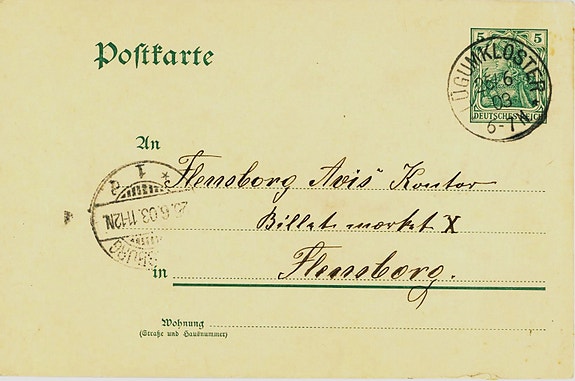 Postkarte
5 5
DEUTSCHES REICH
LÜGUMKLOSTER
26/6
03
6-7N
An
Flensborg Avis' Kontor
Billet mærket X
in Flensborg.
Wohnung
(Straße und Hausnummer)
.6.03.11-12N.
1